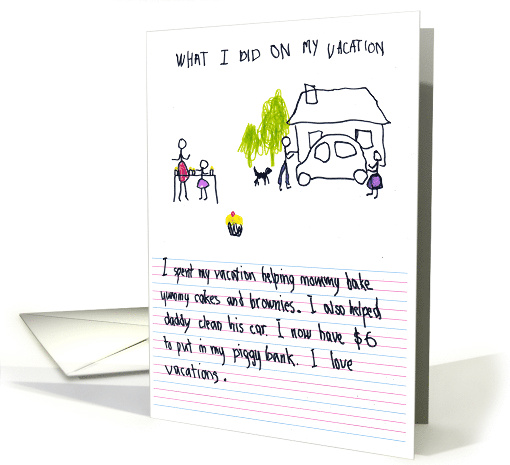 WHAT I DID ON MY VACATION
I spent my vacation helping mommy bake
yummy cakes and brownies. I also helped
daddy clean his car. I now have $6
to put in my piggy bank. I love
vacations.